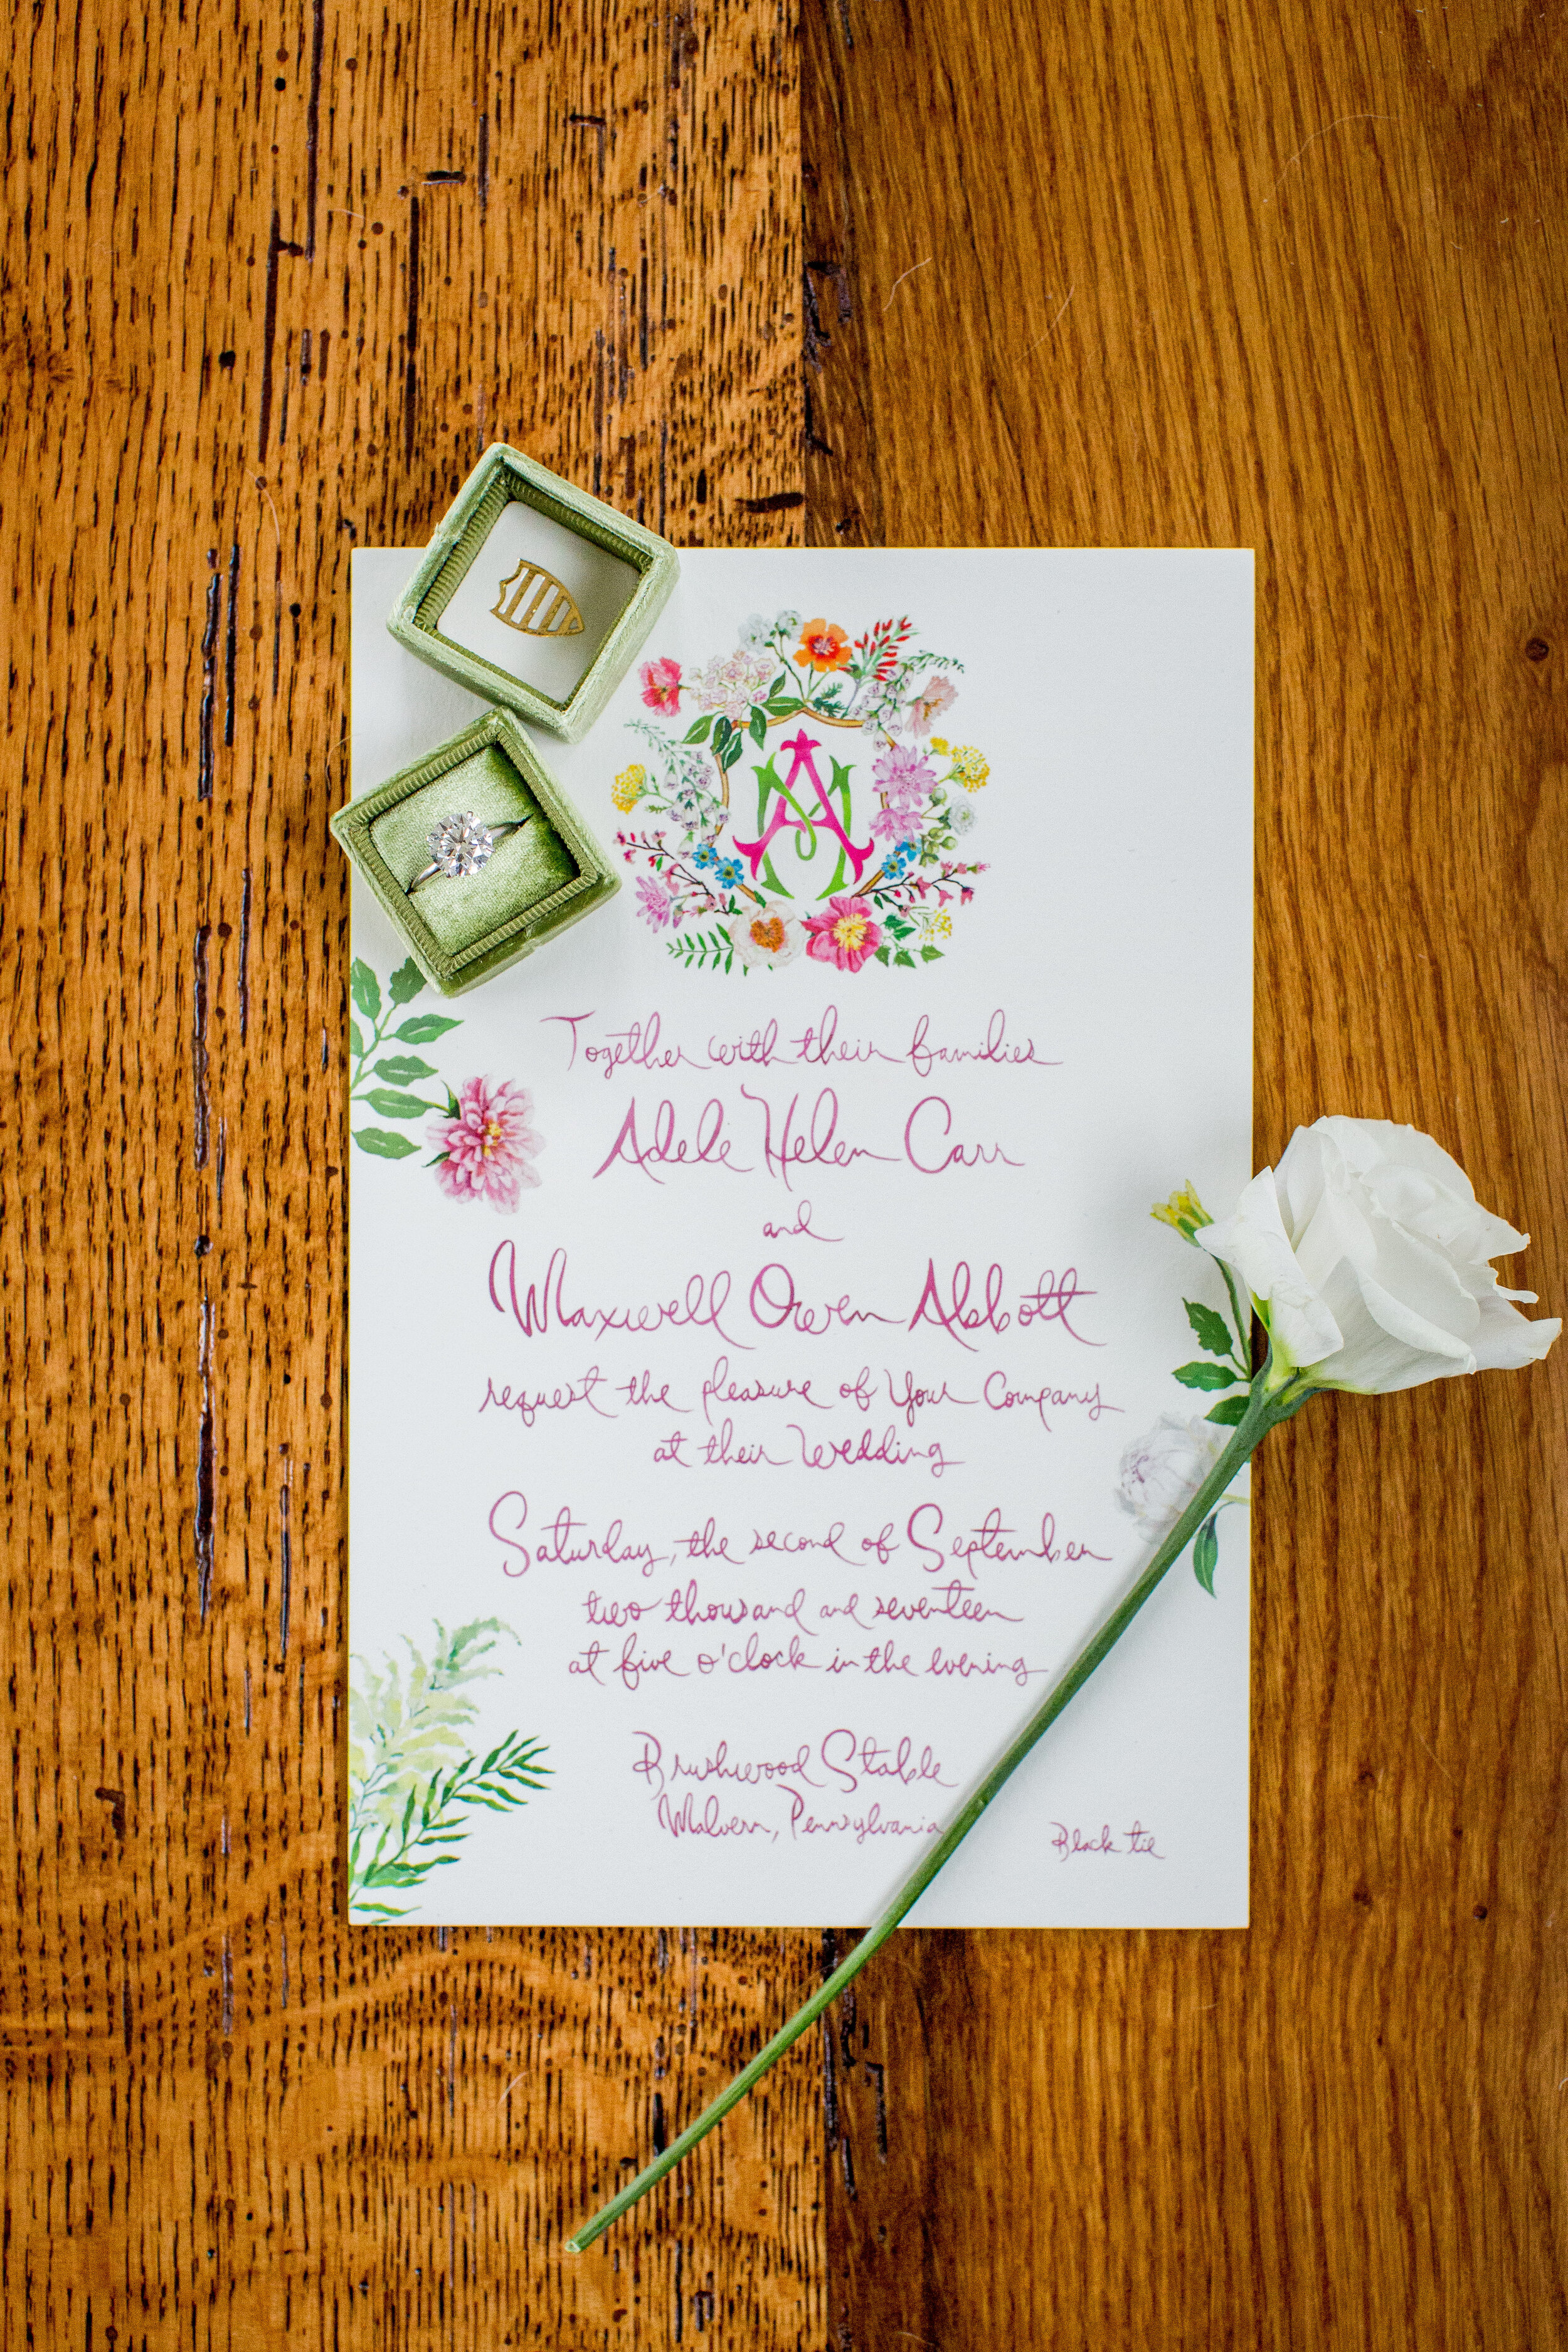 AM
Together with their families
Adele Helen Carr
and
Maxwell Owen Abbott
request the pleasure of Your Company
at their Wedding
Saturday, the second of September
two thousand and seventeen
at five o'clock in the evening
Brushwood Stable
Malvern, Pennsylvania
Black tie